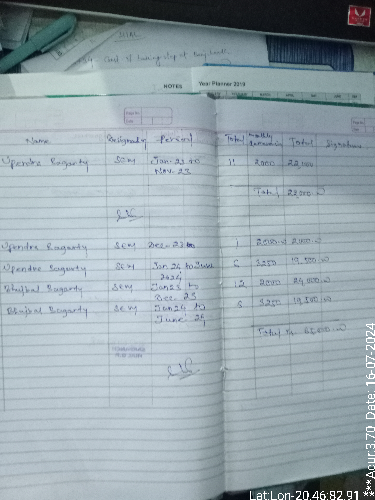 NOTES
Year Planner 2019
Name Designation Period Total monthly remuneration Total Signature
Upendra Bagarty SEM Jan-23 to Nov-23 11 2000 22,000
Total 22,000
Upendra Bagarty SEM Dec-23 to 1 2000 2000
Upendra Bagarty SEM Jan 24 to June 2024 6 3250 19,500
Bhujbal Bagarty SEM Jan 23 to Dec-23 12 2000 24,000
Bhujbal Bagarty SEM Jan 24 to June 24 6 3250 19,500
Total 65,000
Lat:Lon-20.46:82.91 ***Acur:3.70 Date: 16-07-2024